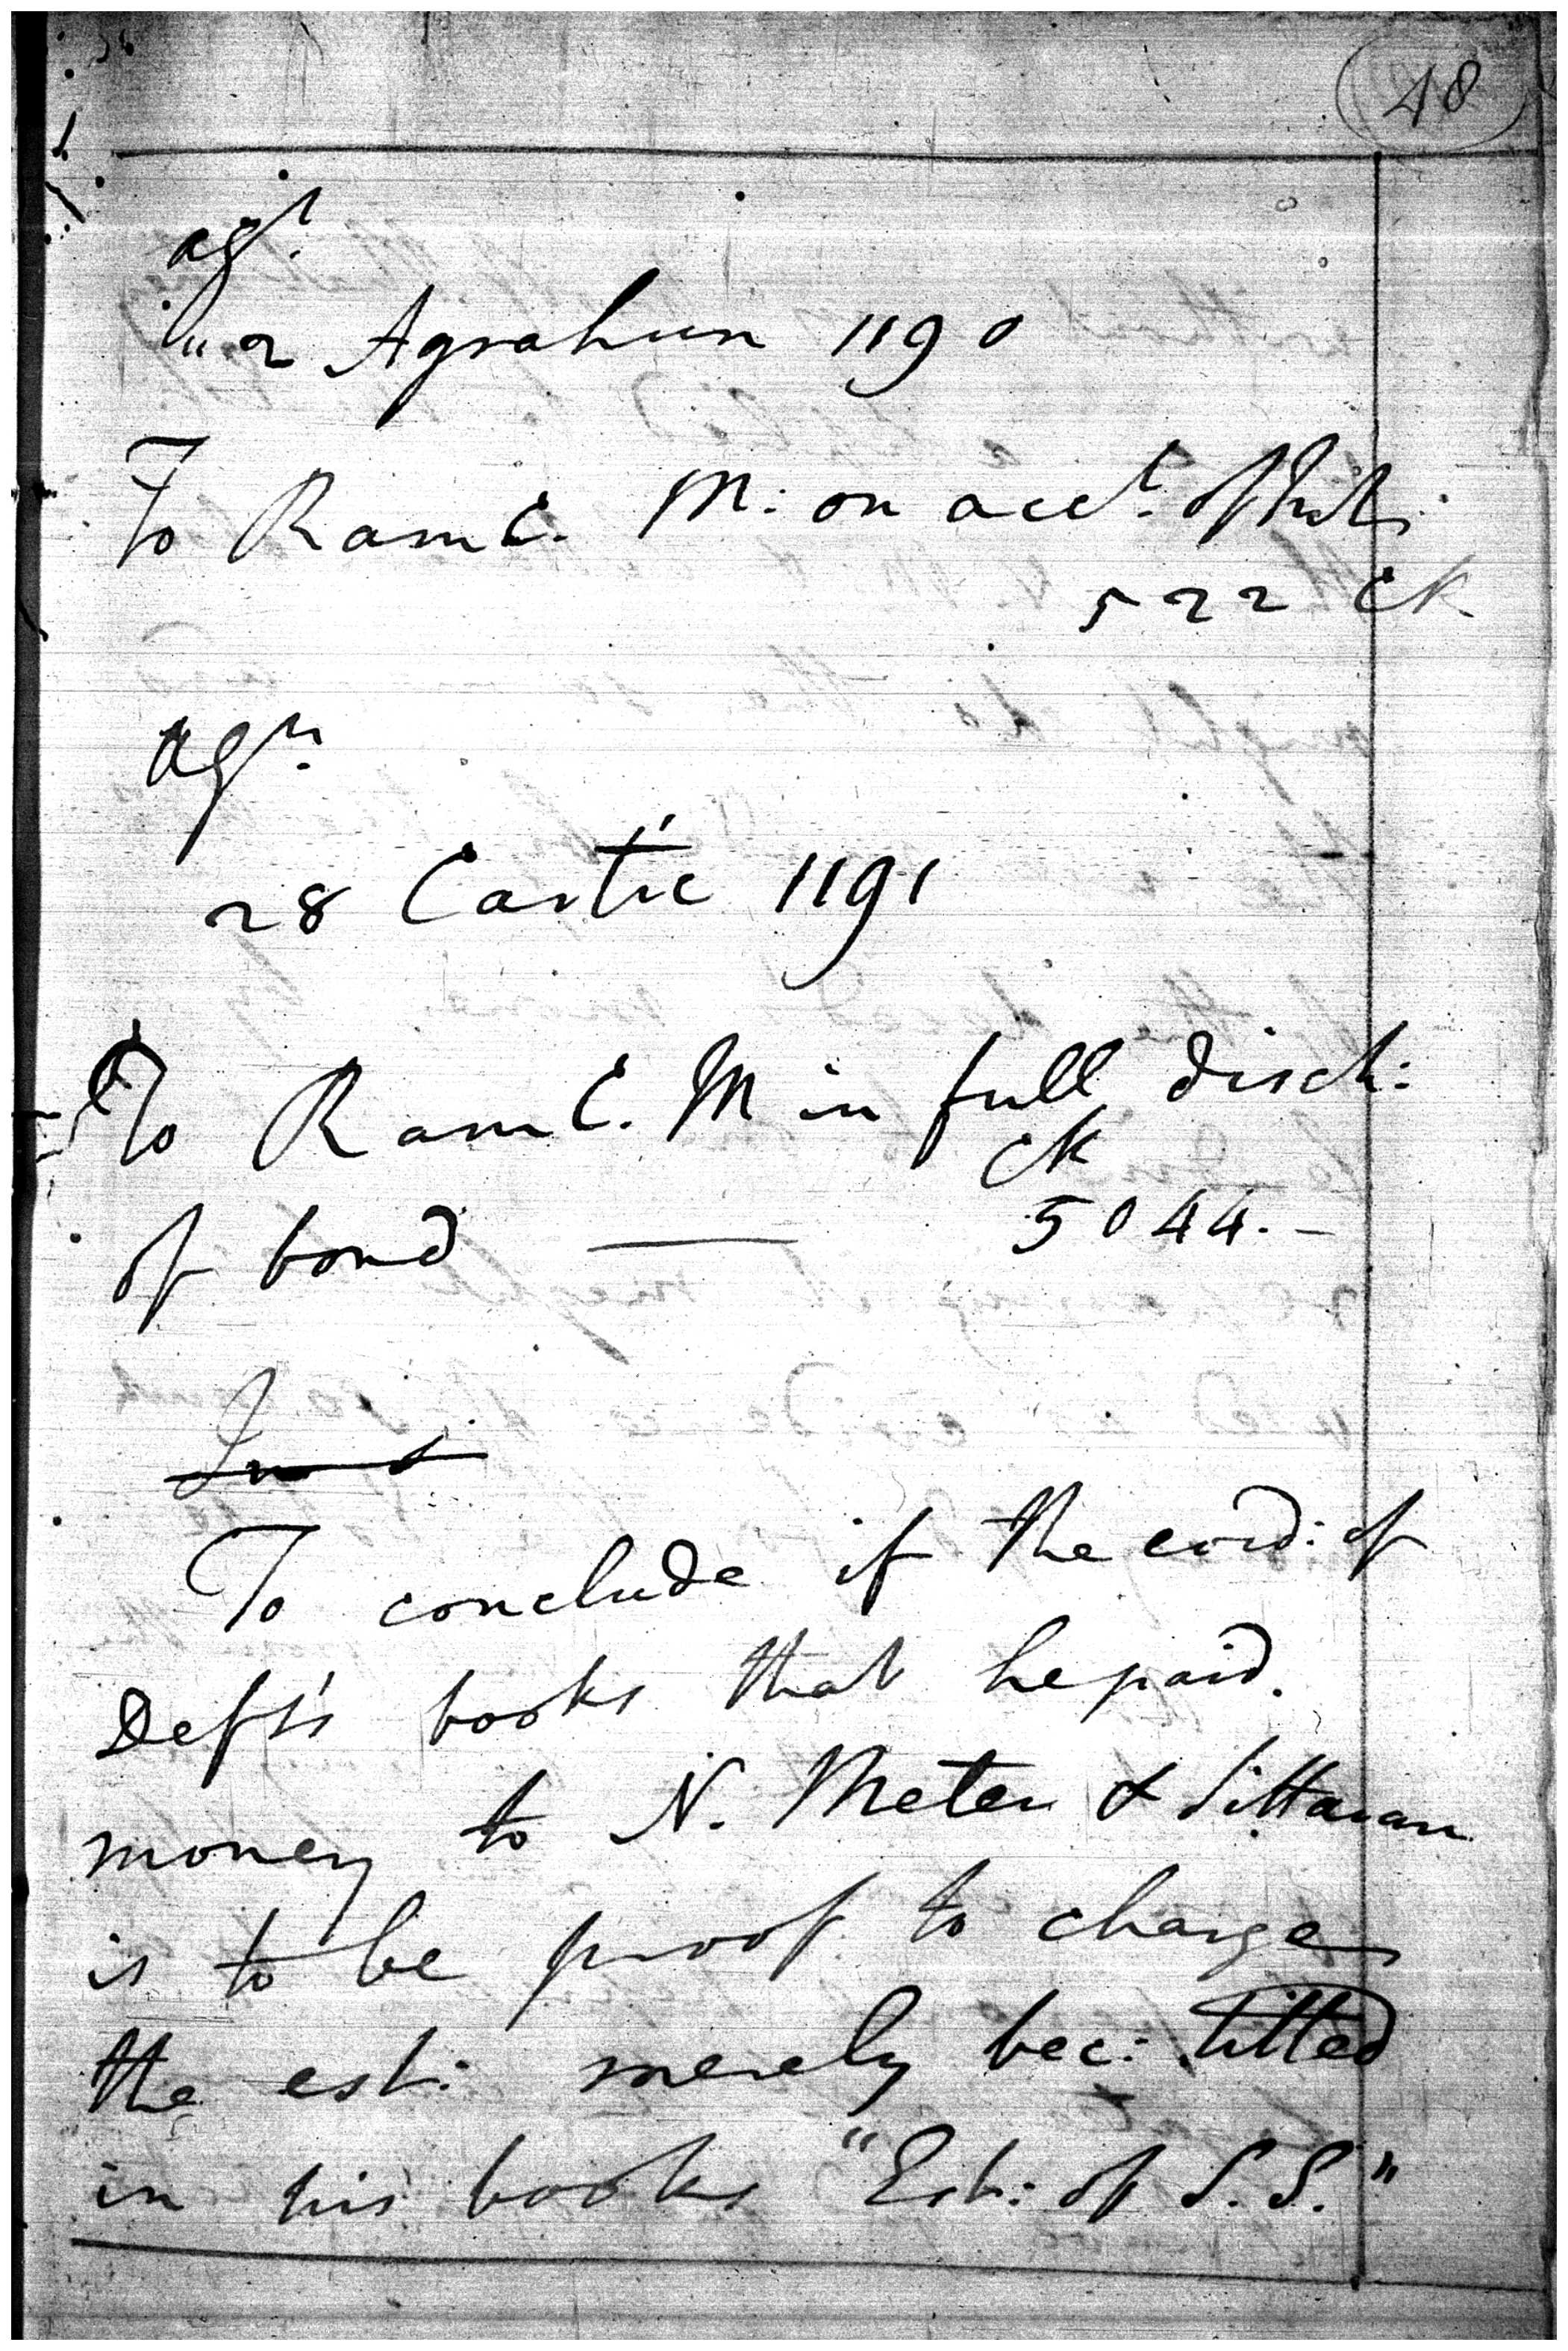 48
agn.
2 Agrahun 1190
To Ram C. M: on acct. of
522 CK
agn.
28 Cartic 1191
To Ram C. M in full disch:
CK
of bond — 5044. –
To conclude if the evid: of
Defts books that he paid
money to N. Meter & Sittaram
is to be proof to charge
the est: merely bec: titled
in his books "Est: of S. S."